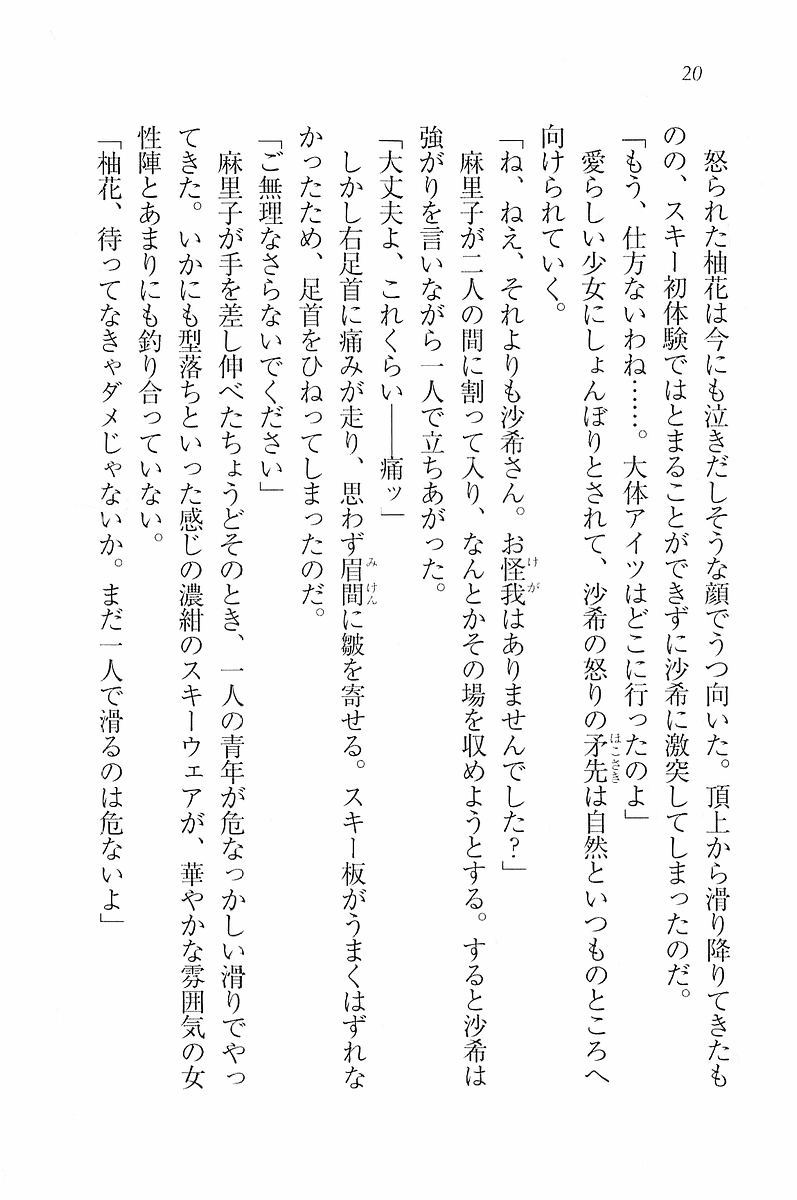 20
怒られた柚花は今にも泣きだしそうな顔でうつ向いた。頂上から滑り降りてきたも
のの、スキー初体験ではとまることができずに沙希に激突してしまったのだ。
「もう、仕方ないわね……。大体アイツはどこに行ったのよ」
愛らしい少女にしょんぼりとされて、沙希の怒りの矛先は自然といつものところへ
向けられていく。
「ね、ねえ、それよりも沙希さん。お怪我はありませんでした？」
麻里子が二人の間に割って入り、なんとかその場を収めようとする。すると沙希は
強がりを言いながら一人で立ちあがった。
「大丈夫よ、これくらい――痛ッ」
しかし右足首に痛みが走り、思わず眉間に皺を寄せる。スキー板がうまくはずれな
かったため、足首をひねってしまったのだ。
「ご無理なさらないでください」
麻里子が手を差し伸べたちょうどそのとき、一人の青年が危なっかしい滑りでやっ
てきた。いかにも型落ちといった感じの濃紺のスキーウェアが、華やかな雰囲気の女
性陣とあまりにも釣り合っていない。
「柚花、待ってなきゃダメじゃないか。まだ一人で滑るのは危ないよ」